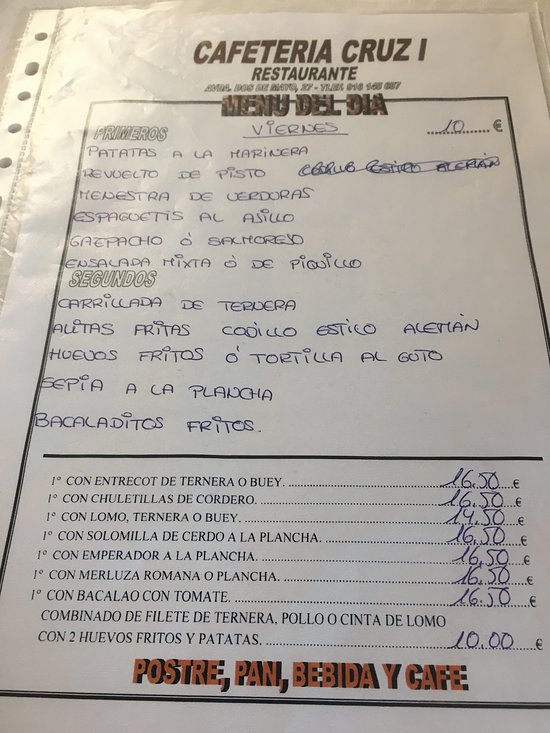 CAFETERIA CRUZ I
RESTAURANTE
AVDA. DOS DE MAYO, 27 - TLEF. 916 145 657
MENU DEL DIA
PRIMEROS VIERNES 10 €
PATATAS A LA MARINERA
REVUELTO DE PISTO ESTILO ALEMÁN
MENESTRA DE VERDURAS
ESPAGUETIS AL AJILLO
GAZPACHO Ó SALMOREJO
ENSALADA MIXTA Ó DE PIQUILLO
SEGUNDOS
CARRILLADA DE TERNERA
ALITAS FRITAS CODILLO ESTILO ALEMÁN
HUEVOS FRITOS Ó TORTILLA AL GUTO
SEPIA A LA PLANCHA
BACALADITOS FRITOS.
1º CON ENTRECOT DE TERNERA O BUEY. 16.50 €
1º CON CHULETILLAS DE CORDERO. 16.50 €
1º CON LOMO, TERNERA O BUEY. 14.50 €
1º CON SOLOMILLA DE CERDO A LA PLANCHA. 16.50 €
1º CON EMPERADOR A LA PLANCHA. 16.50 €
1º CON MERLUZA ROMANA O PLANCHA. 16.50 €
1º CON BACALAO CON TOMATE. 16.50 €
COMBINADO DE FILETE DE TERNERA, POLLO O CINTA DE LOMO
CON 2 HUEVOS FRITOS Y PATATAS. 10.00 €
POSTRE, PAN, BEBIDA Y CAFE